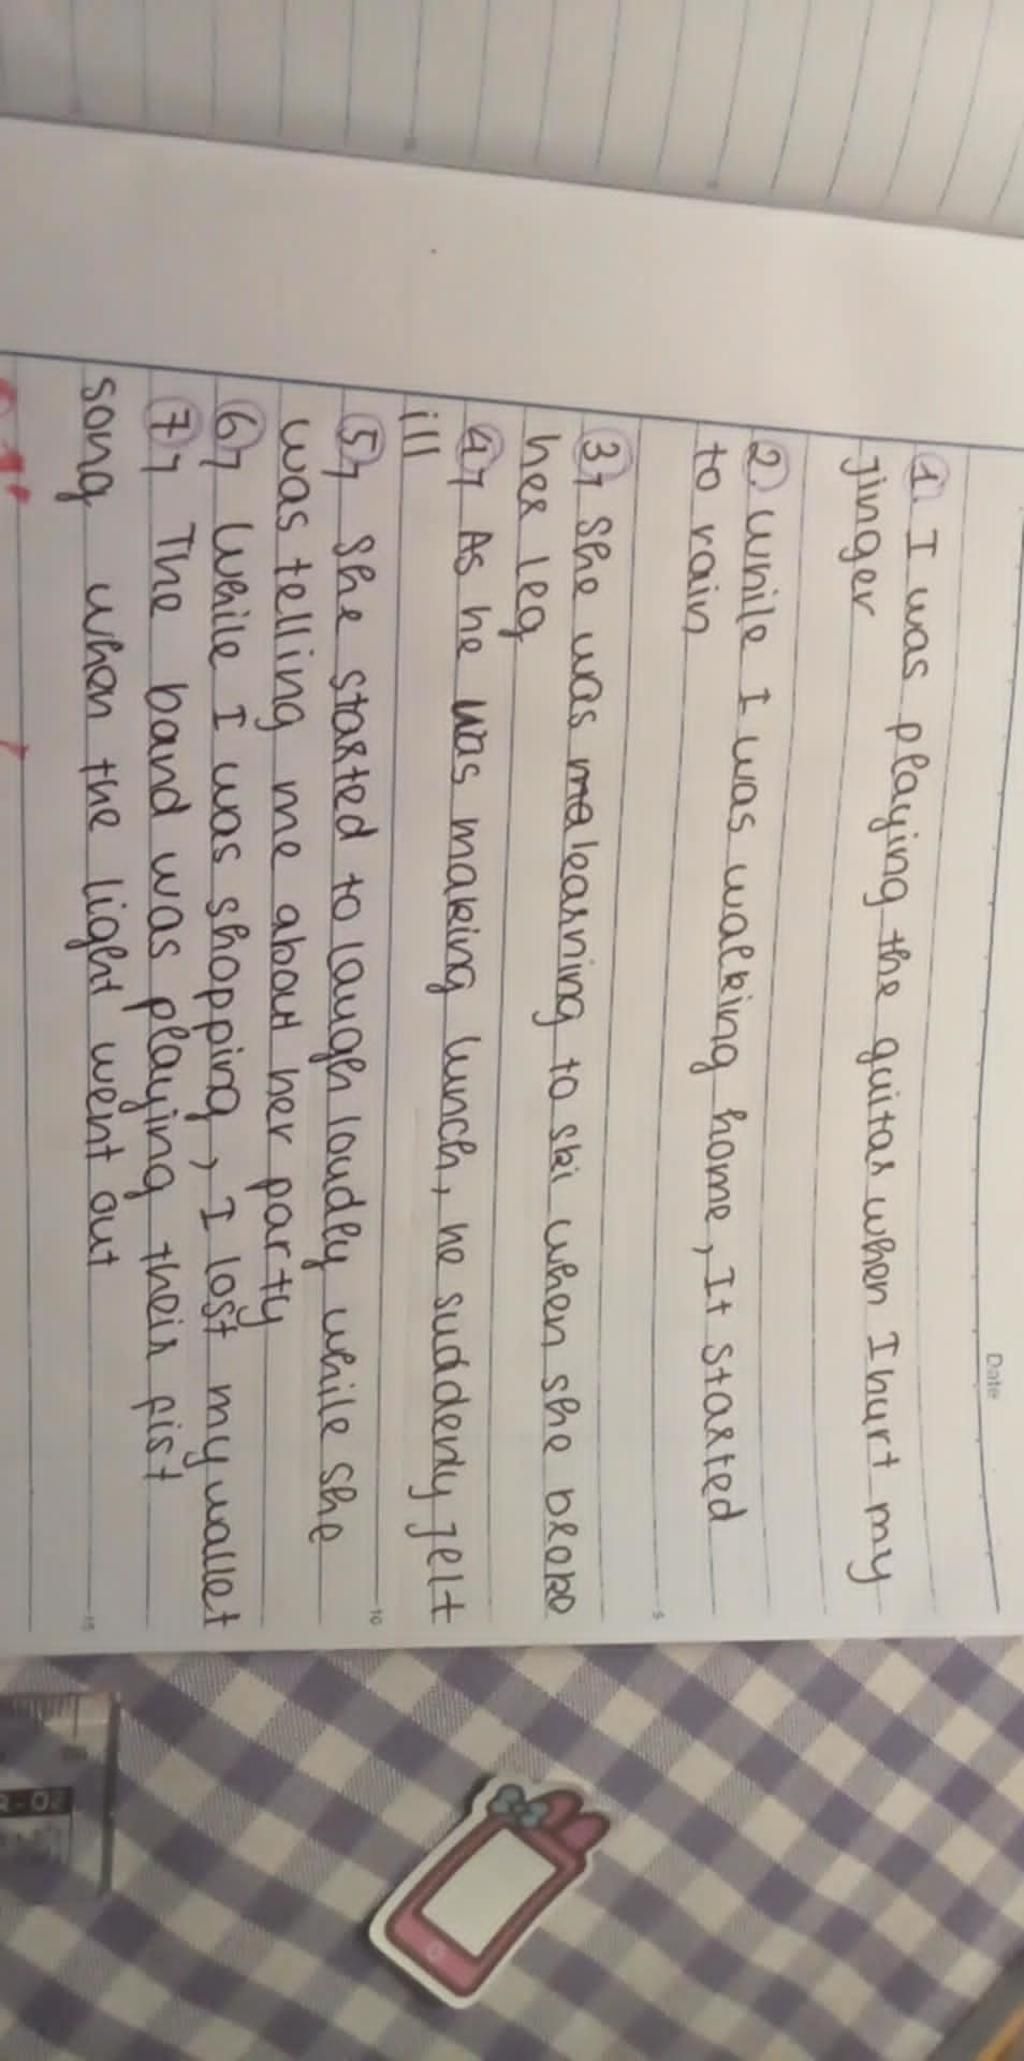 Date
1. I was playing the guitar when I hurt my
finger
2. While I was walking home, It started
to rain
5
3) She was ma learning to ski when she broke
her leg
4) As he was making lunch, he suddenly felt
ill
10
5) She started to laugh loudly while she
was telling me about her party
6) While I was shopping, I lost my wallet
7) The band was playing their fist
song when the light went out
15